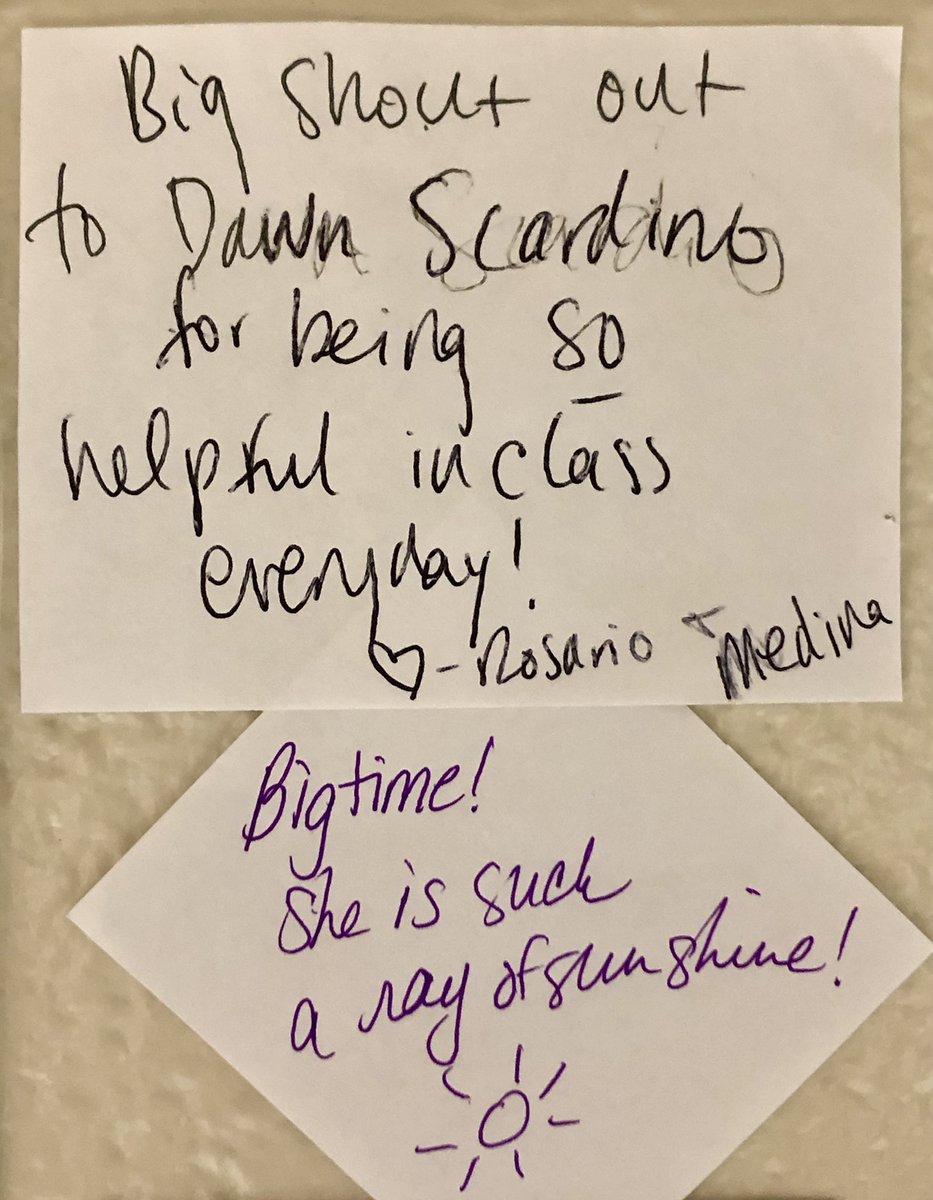 Big Shout out
to Dawn Scardino
for being so
helpful in class
everyday!
♡ - Rosario Medina
Bigtime!
She is such
a ray of sunshine!